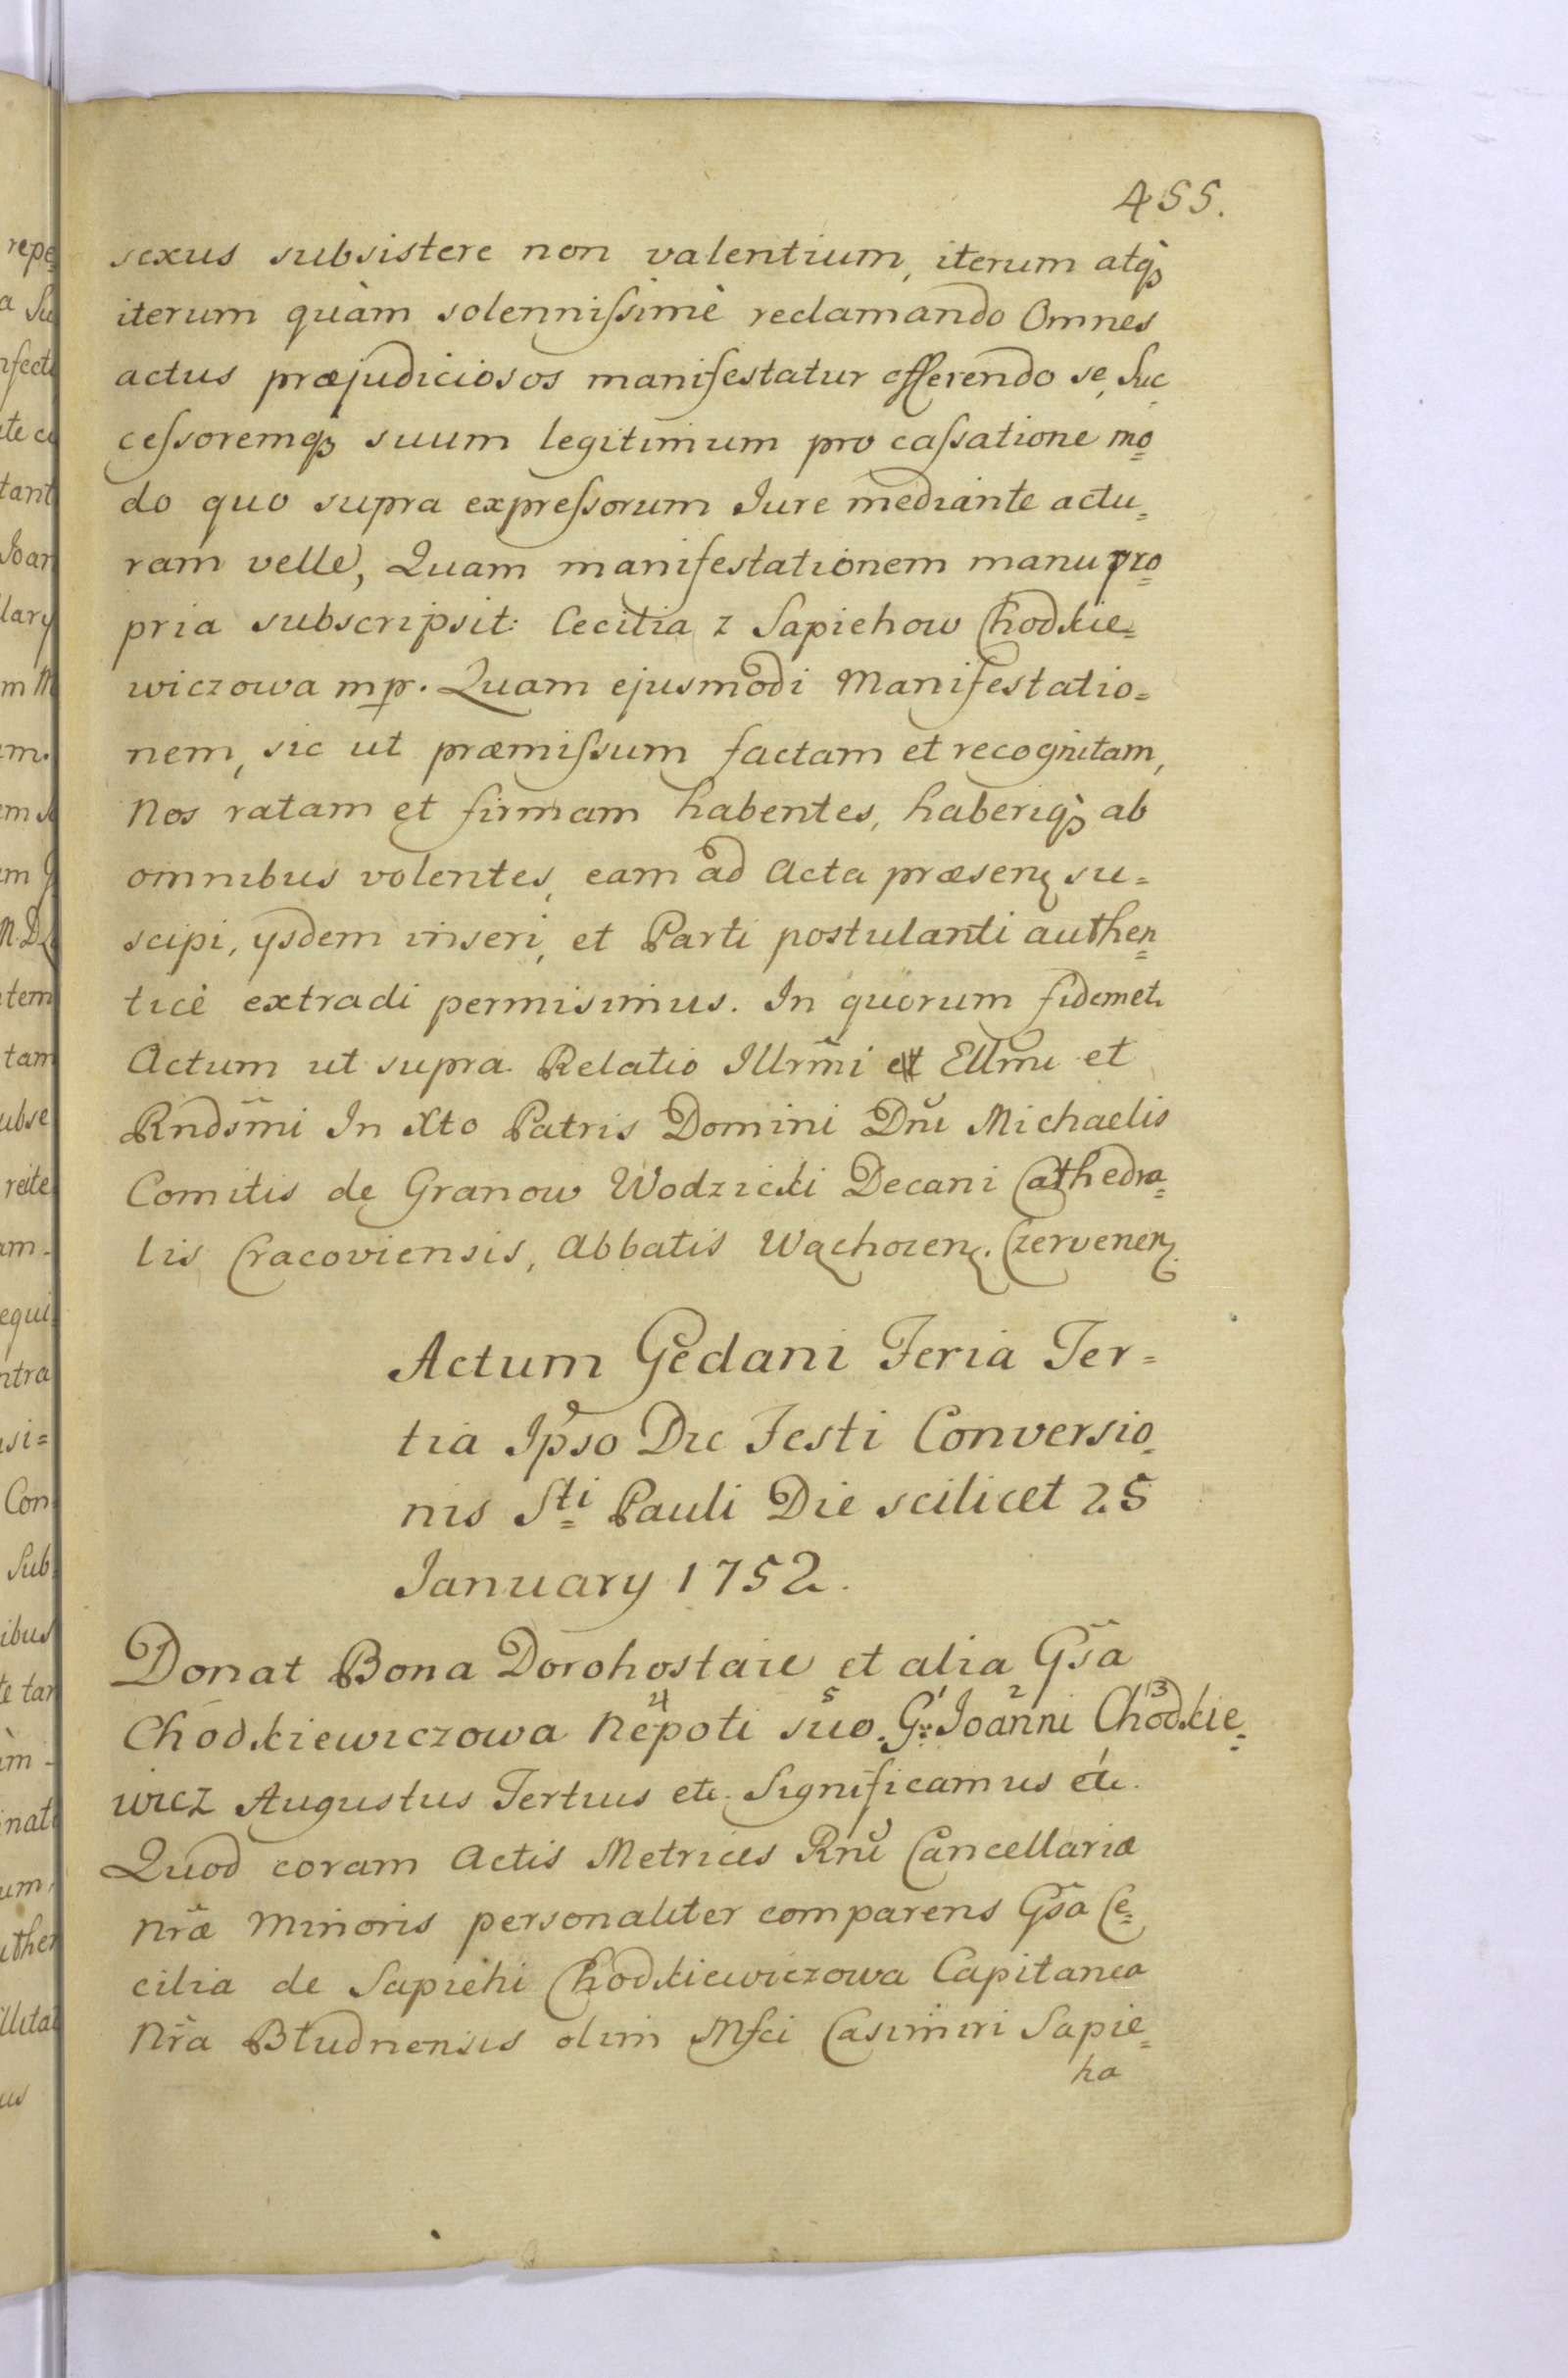 455.
sexus subsistere non valentium, iterum atq̀ꝫ
iterum quàm solennißimè reclamando Omnes
actus præjudiciosos manifestatur offerendo se, Suc
ceßoremqꝫ suum legitimum pro caßatione mo=
do quo supra expreßorum Jure mediante actu=
ram velle, Quam manifestationem manu pro=
pria subscripsit: Cecilia z Sapiehow Chodkie=
wiczowa mp. Quam ejusmodi Manifestatio=
nem, sic ut præmißum factam et recognitam,
Nos ratam et firmam habentes, haberiq̀ꝫ ab
omnibus volentes, eam ad Acta præsenꝫ su=
scipi, ysdem inseri, et Parti postulanti authen=
ticè extradi permisimus. In quorum fidem etc
Actum ut supra. Relatio Illrm̃i et Ellmi et
Rndsm̃i In Xto Patris Domini Dnĭ Michaelis
Comitis de Granow Wodzicki Decani Cathedra=
lis Cracoviensis, Abbatis Wąchocenꝫ. Czervenenꝫ.
Actum Gedani Feria Ter=
tia Ipso Die Festi Conversio=
nis Sti Pauli Die scilicet 25
January 1752.
Donat Bona Dorohostaie et alia Gsã
Chodkiewiczowa 4 Nepoti 5 suo. 1 G. 2 Joanni 3 Chodkie=
wicz Augustus Tertius etc. Significamus etc.
Quod coram Actis Metrices Rnĭ Cancellariæ
Nræ̃ Minoris personaliter comparens Gsã Ce=
cilia de Sapiehi Chodkiewiczowa Capitanea
Nrã Bludnensis olim Mfci Casimiri Sapie=
ha